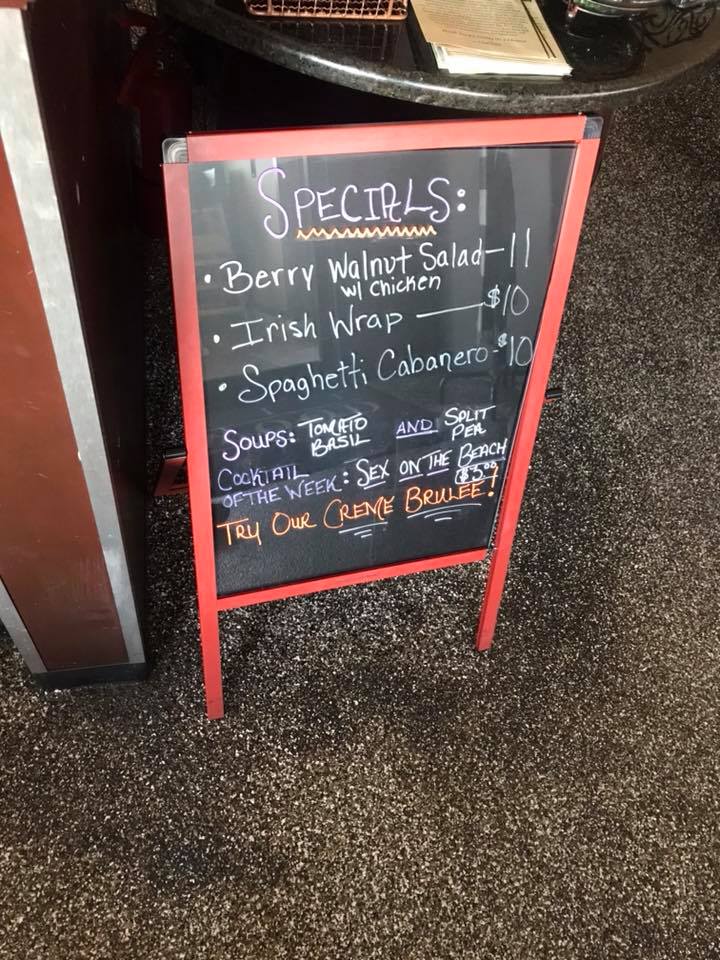 SPECIALS:
• Berry Walnut Salad - 11
w/ Chicken
• Irish Wrap — $10
• Spaghetti Cabanero - $10
SOUPS: TOMATO BASIL AND SPLIT PEA
COCKTAIL OF THE WEEK: SEX ON THE BEACH
$5.00
TRY OUR CREME BRULEE!